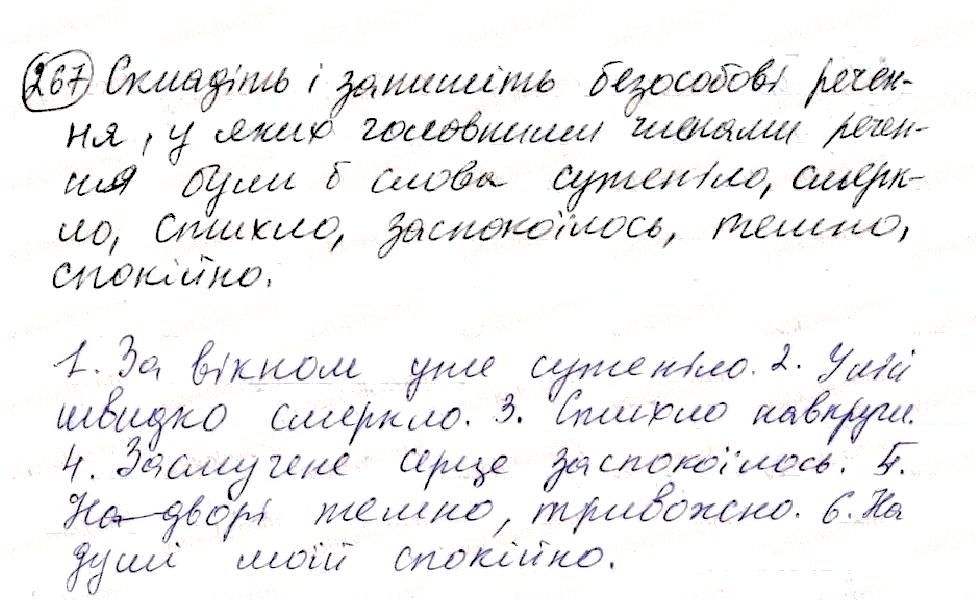 267 Складіть і запишіть безособові речен-
ня, у яких головними членами речен-
ня були б слова сутеніло, смерк-
ло, стихло, заспокоїлось, темно,
спокійно.
1. За вікном уже сутеніло. 2. Уміть
швидко смеркло. 3. Стихло навкруги.
4. Засмучене серце заспокоїлось. 5.
На дворі темно, тривожно. 6. На
душі моїй спокійно.